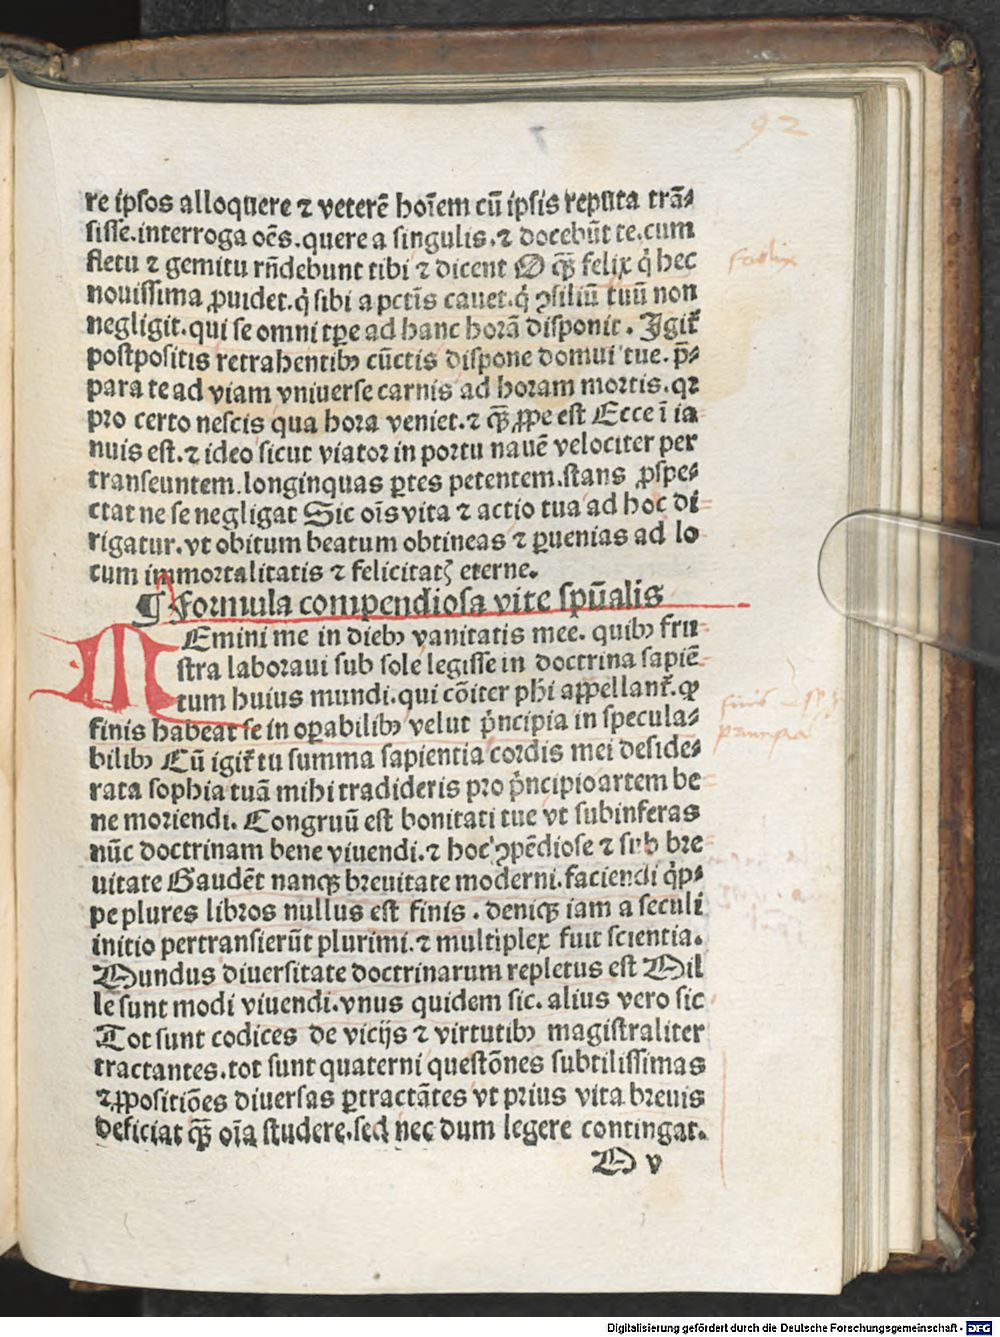 92
re ipsos alloquere ⁊ veterē hoīem cū ipsis reputa trā⸗
sisse.interroga oēs.quere a singulis.⁊ docebūt te.cum
fletu ⁊ gemitu rn̄debunt tibi ⁊ dicent O qꝫ̄ felix q̇ hec
nouissima ꝓuidet.q̇ sibi a pctīs cauet.q̇ ꝯsiliū tuū non
negligit.qui se omni tꝑe ad hanc horā disponit. Igit᷑
postpositis retrahentibꝰ cūctis dispone domui tue.p̄⸗
para te ad viam vniuerse carnis ad horam mortis.qꝛ
pro certo nescis qua hora veniet.⁊ qꝫ̄ ꝓpe est Ecce ī ia⸗
nuis est.⁊ ideo sicut viator in portu nauē velociter per
transeuntem.longinquas ꝑtes petentem.stans ꝓspe⸗
ctat ne se negligat Sic oīs vita ⁊ actio tua ad hoc di⸗
rigatur.vt obitum beatum obtineas ⁊ ꝑuenias ad lo
cum immortalitatis ⁊ felicitatꝭ eterne.
¶ Formula compendiosa vite spūalis
MEmini me in diebꝰ vanitatis mee. quibꝰ fru⸗
stra laboraui sub sole legisse in doctrina sapiē⸗
tum huius mundi.qui cōiter phi appellant᷑.ꝙ
finis habeat se in oꝑabilibꝰ velut pͥncipia in specula⸗
bilibꝰ Cū igit᷑ tu summa sapientia cordis mei deside⸗
rata sophia tuā mihi tradideris pro pͥncipio artem be⸗
ne moriendi. Congruū est bonitati tue vt subinferas
nūc doctrinam bene viuendi.⁊ hoc ꝯpēdiose ⁊ sub bre
uitate Gaudēt nanqꝫ breuitate moderni.faciendi q̇p⸗
pe plures libros nullus est finis. deniqꝫ iam a seculi
initio pertransierūt plurimi.⁊ multiplex fuit scientia.
Mundus diuersitate doctrinarum repletus est Mil
le sunt modi viuendi.vnus quidem sic. alius vero sic
Tot sunt codices de vicijs ⁊ virtutibꝰ magistraliter
tractantes.tot sunt quaterni questōnes subtilissimas
⁊ ꝓpositiōes diuersas ꝑtractātes vt prius vita breuis
deficiat qꝫ̄ oīa studere.sed nec dum legere contingat.
M v
Digitalisierung gefördert durch die Deutsche Forschungsgemeinschaft - DFG